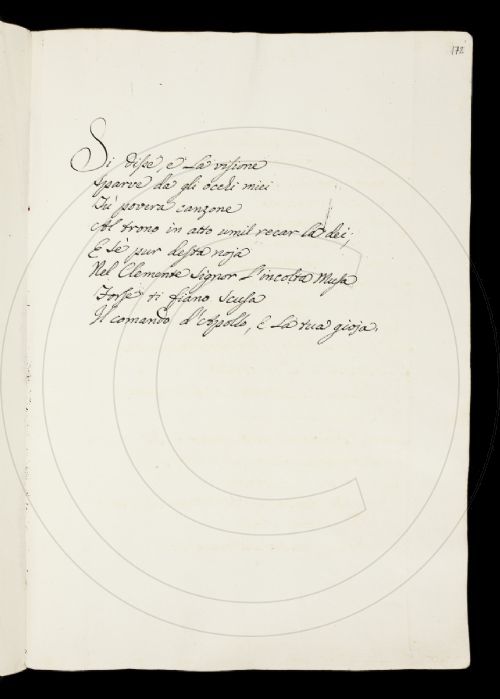 172
Si disse, e La visione
Sparve da gli occhi miei
Tù povera canzone
Al trono in atto umil recar la dei;
E Sè pur desta noja
Nel Clemente Signor L'incolta Musa
Forse ti fiano Scusa
Il comando d'Apollo, E La tua gioja.